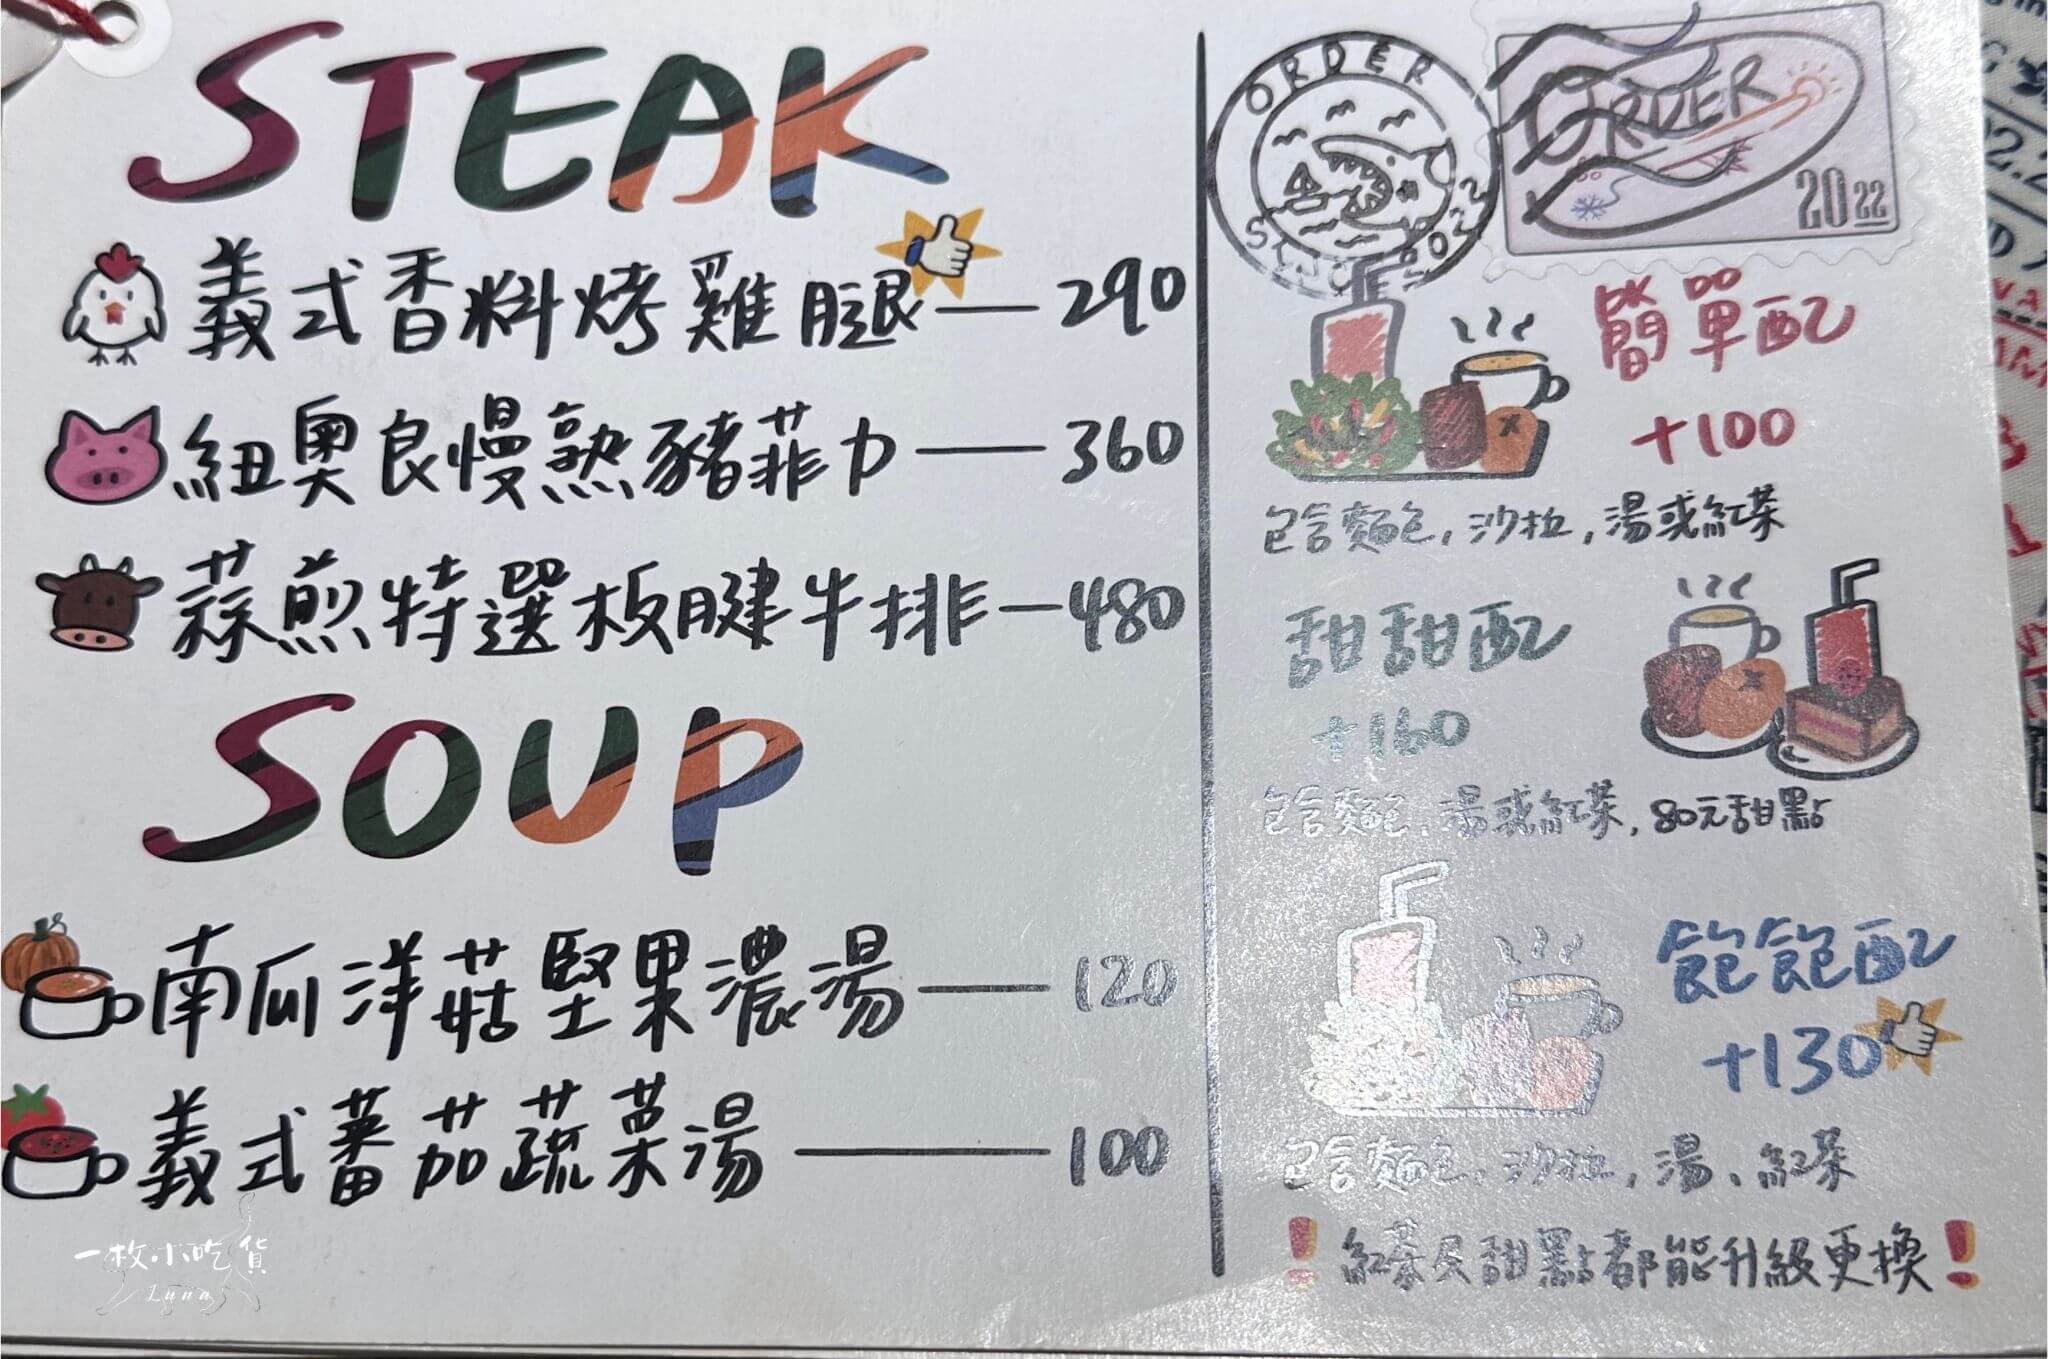 STEAK
義式香料烤雞腿—290
紐奧良慢熟豬菲力—360
蒜煎特選板腱牛排—480
SOUP
南瓜洋菇堅果濃湯—120
義式蕃茄蔬菜湯—100
一枚小吃貨
Luna
ORDER
SINCE 2022
ORDER
2022
簡單配
+100
包含麵包,沙拉,湯或紅茶
甜甜配
+160
包含麵包,湯或紅茶,80元甜點
飽飽配
+130
包含麵包,沙拉,湯、紅茶
!紅茶及甜點都能升級更換!